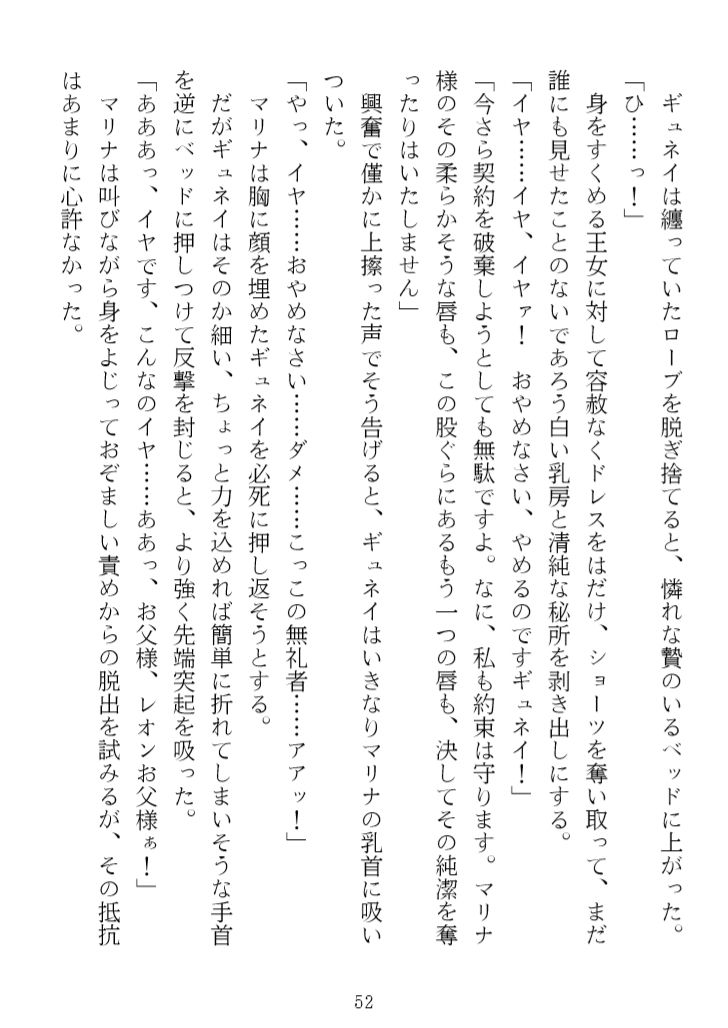 ギュネイは纏っていたローブを脱ぎ捨てると、憐れな贄のいるベッドに上がった。
「ひ……っ！」
身をすくめる王女に対して容赦なくドレスをはだけ、ショーツを奪い取って、まだ
誰にも見せたことのないであろう白い乳房と清純な秘所を剥き出しにする。
「イヤ……イヤ、イヤァ！　おやめなさい、やめるのですギュネイ！」
「今さら契約を破棄しようとしても無駄ですよ。なに、私も約束は守ります。マリナ
様のその柔らかそうな唇も、この股ぐらにあるもう一つの唇も、決してその純潔を奪
ったりはいたしません」
興奮で僅かに上擦った声でそう告げると、ギュネイはいきなりマリナの乳首に吸い
ついた。
「やっ、イヤ……おやめなさい……ダメ……こっこの無礼者……アアッ！」
マリナは胸に顔を埋めたギュネイを必死に押し返そうとする。
だがギュネイはそのか細い、ちょっと力を込めれば簡単に折れてしまいそうな手首
を逆にベッドに押しつけて反撃を封じると、より強く先端突起を吸った。
「あああっ、イヤです、こんなのイヤ……ああっ、お父様、レオンお父様ぁ！」
マリナは叫びながら身をよじっておぞましい責めからの脱出を試みるが、その抵抗
はあまりに心許なかった。
52